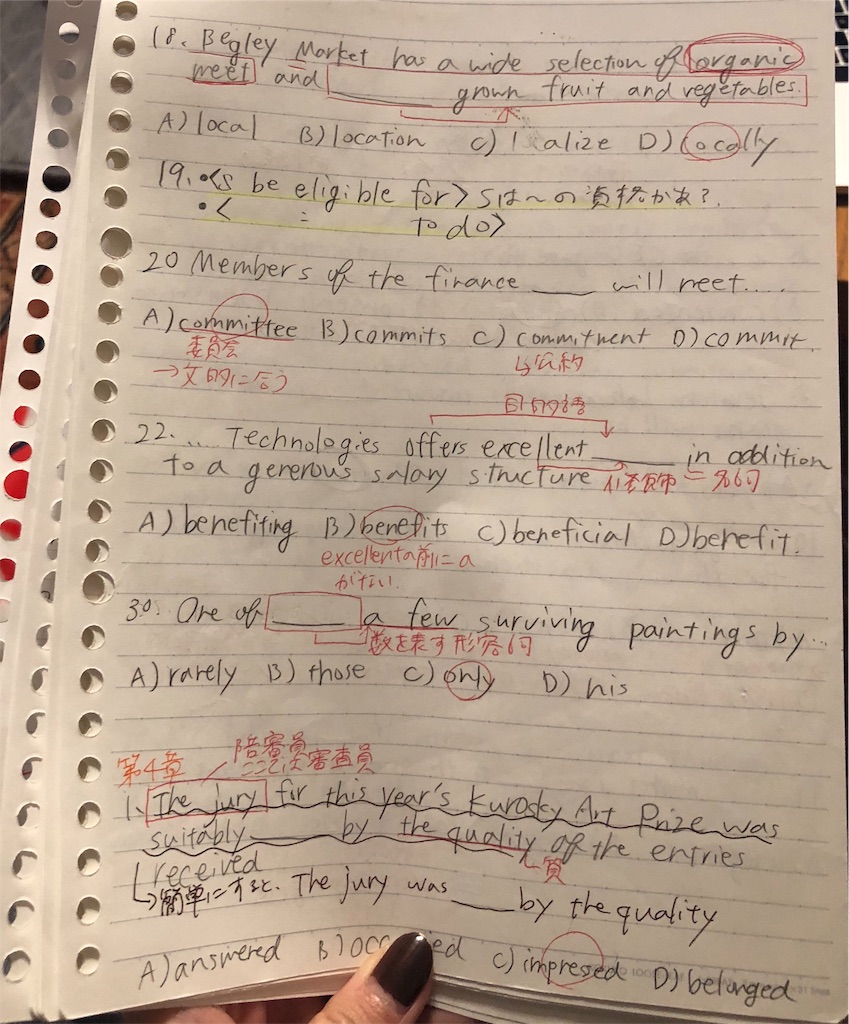 18. Begley Market has a wide selection of organic
meet and ____ grown fruit and vegetables.
A) local B) location C) l calize D) locally
19. •<S be eligible for> Sは〜の資格がある.
•< : to do>
20 Members of the finance ____ will meet.....
A) committee B) commits C) commitment D) commit.
委員会 ↳公約
→文的に合う
目的語
22. ... Technologies offers excellent ____ in addition
to a generous salary structure 形容詞=名詞
A) benefiting B) benefits C) beneficial D) benefit.
excellentの前にa
がない.
30. One of ____ a few surviving paintings by...
数を表す形容詞
A) rarely B) those C) only D) his
第4章 陪審員
ここでは審査員
1. The jury for this year's Kurosky Art Prize was
suitably ____ by the quality of the entries
received 質
↳簡単にすると. The jury was ____ by the quality
A) answered C) impresed D) belonged